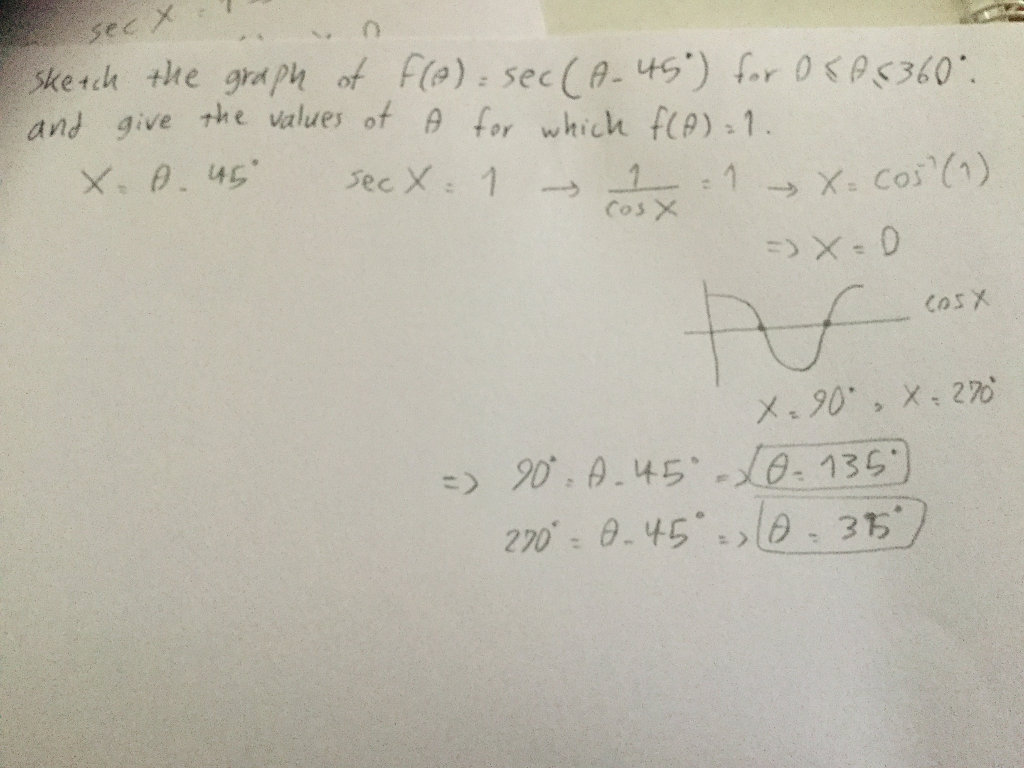 sec X = 1
Sketch the graph of f(θ) = sec(θ - 45°) for 0 ≤ θ ≤ 360°.
and give the values of θ for which f(θ) = 1.
X = θ - 45° sec X = 1 → 1/cos X = 1 → X = cos⁻¹(1)
=> X = 0
cos X
X = 90°, X = 270°
=> 90° = θ - 45° => θ = 135°
270° = θ - 45° => θ = 315°